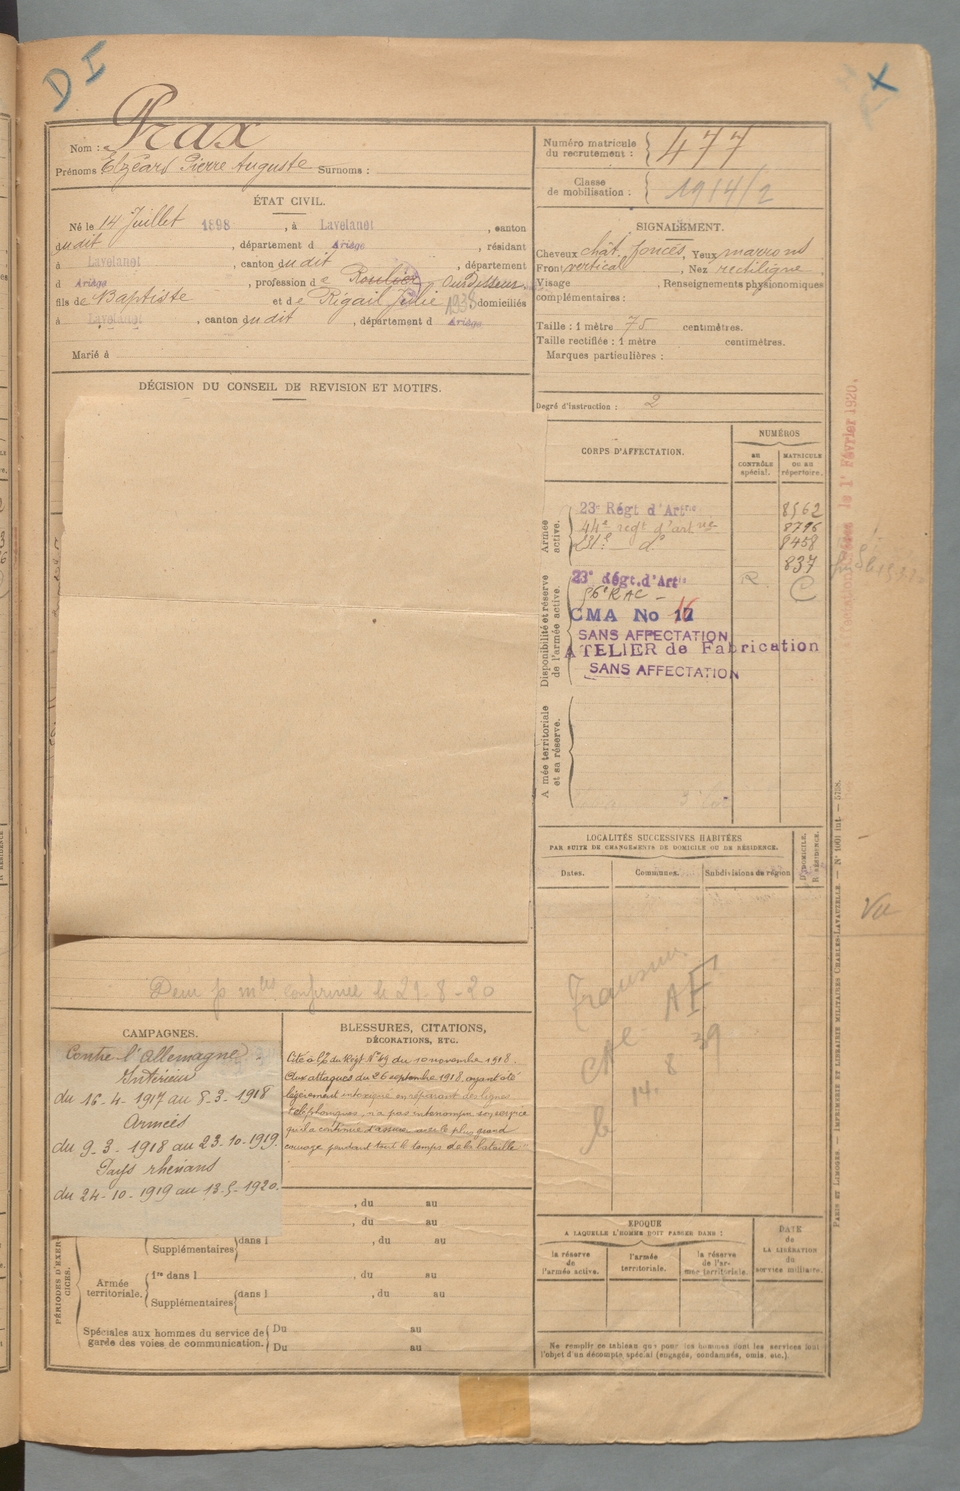 D I
X
Nom : Prax
Prénoms Elzéard Pierre Auguste Surnoms :
Numéro matricule du recrutement : 477
Classe de mobilisation : 1914/2
ÉTAT CIVIL.
Né le 14 Juillet 1898, à Lavelanet, canton
dudit, département d Ariège, résidant
à Lavelanet, canton dudit, département
d Ariège, profession de Roulier Ourdisseur
fils de Baptiste et de Rigail Julie 1938 domiciliés
à Lavelanet, canton dudit, département d Ariège
Marié à
SIGNALEMENT.
Cheveux chât. foncés, Yeux marrons
Front vertical, Nez rectiligne,
Visage , Renseignements physionomiques
complémentaires :
Taille : 1 mètre 75 centimètres.
Taille rectifiée : 1 mètre centimètres.
Marques particulières :
Degré d'instruction : 2
DÉCISION DU CONSEIL DE REVISION ET MOTIFS.
CORPS D'AFFECTATION.
NUMÉROS
au CONTRÔLE spécial.
MATRICULE ou au répertoire.
Armée active.
23e Régt d'Artie 8562
44e regt d'artie 8796
231e d° 8458
837
Disponibilité et réserve de l'armée active.
23e Régt. d'Artie R. C
56e RAC -
CMA No 17 16
SANS AFFECTATION
ATELIER de Fabrication
SANS AFFECTATION
Armée territoriale et sa réserve.
le 1er Février 1920.
LOCALITÉS SUCCESSIVES HABITÉES
PAR SUITE DE CHANGEMENTS DE DOMICILE OU DE RÉSIDENCE.
Dates.
Communes.
Subdivisions de région
D. DOMICILE.
R. RÉSIDENCE.
Vu
AF
14. 8 39
PARIS ET LIMOGES. — IMPRIMERIE ET LIBRAIRIE MILITAIRES CHARLES-LAVAUZELLE. — N° 1001 int. — 5798.
confirmée le 21-8-20
CAMPAGNES.
Contre l'Allemagne.
Intérieur
du 16-4-1917 au 8-3-1918
Armées
du 9-3-1918 au 23-10-1919.
Pays rhénans
du 24-10-1919 au 13-5-1920.
BLESSURES, CITATIONS,
DÉCORATIONS, ETC.
Cité à l'O. du Régt N° 49 du 10 novembre 1918.
Aux attaques du 26 septembre 1918 ayant été
légèrement intoxiqué en réparant des lignes
téléphoniques, n'a pas interrompu son service
qu'il a continué d'assurer avec le plus grand
courage pendant tout le temps de la bataille
, du au
, du au
Supplémentaires dans l , du au
PÉRIODES D'EXERCICES.
Armée territoriale.
1re dans l , du au
Supplémentaires dans l , du au
Spéciales aux hommes du service de garde des voies de communication.
Du au
Du au
EPOQUE
A LAQUELLE L'HOMME DOIT PASSER DANS :
la réserve de l'armée active.
l'armée territoriale.
la réserve de l'armée territoriale.
DATE
de
LA LIBÉRATION
du
service militaire.
Ne remplir ce tableau que pour les hommes dont les services font
l'objet d'un décompte spécial (engagés, condamnés, omis, etc.).